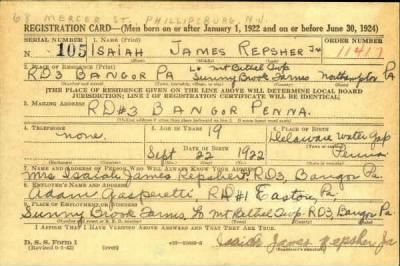 68 MERCER ST. PHILLIPSBURG, N.J.
REGISTRATION CARD—(Men born on or after January 1, 1922 and on or before June 30, 1924)
SERIAL NUMBER 1. NAME (Print) ORDER NUMBER
105 ISAIAH JAMES REPSHER Jr 11417
(First) (Middle) (Last)
2. PLACE OF RESIDENCE (Print)
RD3 BANGOR PA Lo Mt Bethel Twp Sunny Brook Farms Northampton PA
(Number and street) (Town, township, village, or city) (County) (State)
[THE PLACE OF RESIDENCE GIVEN ON THE LINE ABOVE WILL DETERMINE LOCAL BOARD
JURISDICTION; LINE 2 OF REGISTRATION CERTIFICATE WILL BE IDENTICAL]
3. MAILING ADDRESS
RD#3 BANGOR PENNA.
4. TELEPHONE 5. AGE IN YEARS 6. PLACE OF BIRTH
none. 19 Delaware Water Gap
DATE OF BIRTH
Sept 22 1922 Penna
(Mo.) (Day) (Yr.)
7. NAME AND ADDRESS OF PERSON WHO WILL ALWAYS KNOW YOUR ADDRESS
Mrs Isaiah James Repsher RD3, Bangor Pa.
8. EMPLOYER'S NAME AND ADDRESS
Adam Gasperetti, RD#1 Easton, Pa.
9. PLACE OF EMPLOYMENT OR BUSINESS
Sunny Brook Farms Lo Mt Bethel Twp. RD3, Bangor Pa
I AFFIRM THAT I HAVE VERIFIED ABOVE ANSWERS AND THAT THEY ARE TRUE.
D. S. S. Form 1
(Revised 6-9-42)
Isaiah James Repsher Jr